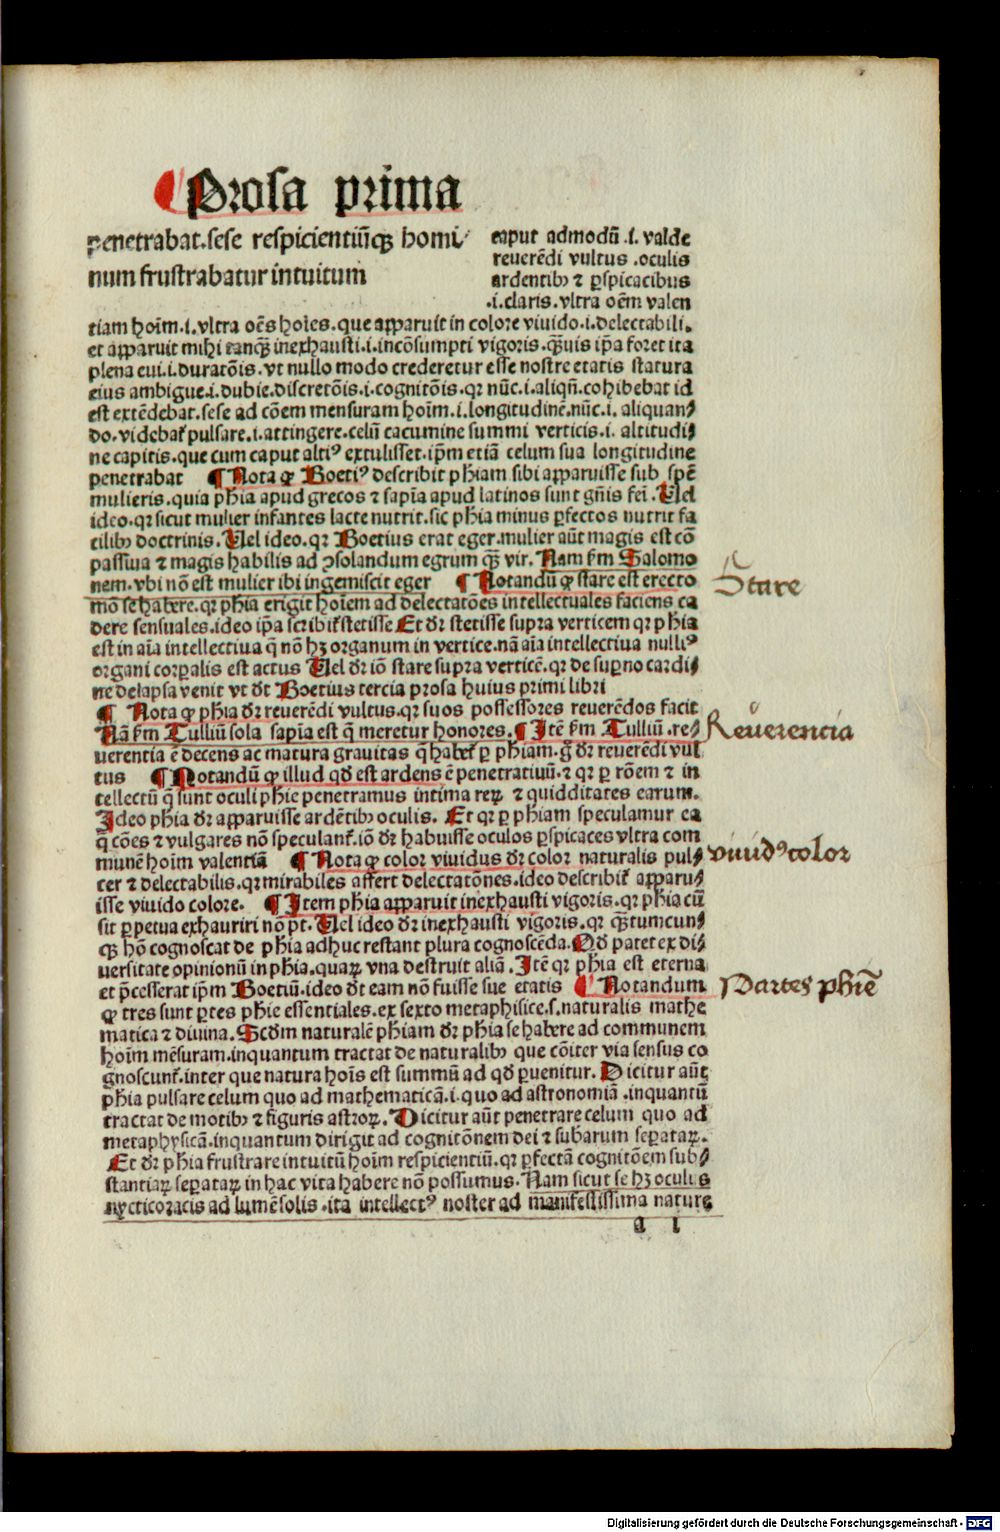 ¶ Prosa prima
penetrabat.sese respicientiūqꝫ homi⸗
num frustrabatur intuitum
caput admodū .i. valde
reuerēdi vultus .oculis
ardentibꝰ ⁊ ꝑspicacibus
.i.claris.vltra oēm valen
tiam hoīm.i.vltra oēs hoīes.que apparuit in colore viuido.i.delectabili.
et apparuit mihi tanqꝫ inexhausti.i.incōsumpti vigoris.qꝫuis ip̄a foret ita
plena eui.i.duratōis.vt nullo modo crederetur esse nostre etatis statura
eius ambigue.i.dubie.discretōis.i.cognitōis.qꝛ nūc.i.aliqn̄.cohibebat id
est extēdebat.sese ad cōem mensuram hoīm.i.longitudinē.nūc.i. aliquan⸗
do.videbat᷑ pulsare.i.attingere.celū cacumine summi verticis.i. altitudi⸗
ne capitis.que cum caput altiꝰ extulisset.ip̄m etiā celum sua longitudine
penetrabat ¶ Nota ꝙ Boetiꝰ describit phiam sibi apparuisse sub spē
mulieris.quia phīa apud grecos ⁊ sapīa apud latinos sunt gn̄is fei̅.Uel
ideo.qꝛ sicut mulier infantes lacte nutrit.sic phīa minus ꝑfectos nutrit fa
cilibꝰ doctrinis.Uel ideo.qꝛ Boetius erat eger.mulier aūt magis est cō
passiua ⁊ magis habilis ad ↄsolandum egrum qꝫ vir.Nam ẜm Salomo
nem.vbi nō est mulier ibi ingemiscit eger ¶ Notandū ꝙ stare est erecto
mō se habere.qꝛ phīa erigit hoīem ad delectatōes intellectuales faciens ca
dere sensuales.ideo ip̄a scribit᷑ stetisse Et dr̄ stetisse supra verticem qꝛ phīa
est in aīa intellectiua q̄ nō hꝫ organum in vertice.nā aīa intellectiua nulliꝰ
organi corꝑalis est actus Uel dr̄ iō stare supra verticē.qꝛ de suꝑno cardi⸗
ne delapsa venit vt dt̄ Boetius tercia prosa huius primi libri
¶ Nota ꝙ phīa dr̄ reuerēdi vultus.qꝛ suos possessores reuerēdos facit
Nā ẜm Tulliū sola sapīa est q̄ meretur honores.¶ Itē ẜm Tulliū.re⸗
uerentia ē decens ac matura grauitas q̄ habet᷑ ꝑ phīam.g̊ dr̄ reuerēdi vul
tus ¶ Notandū ꝙ illud qd̄ est ardens ē penetratiuū.⁊ qꝛ ꝑ rōem ⁊ in
tellectū q̄ sunt oculi phīe penetramus intima reꝝ ⁊ quidditates earum.
Ideo phīa dr̄ apparuisse ardētibꝰ oculis. Et qꝛ ꝑ phiam speculamur ea
q̄ cōes ⁊ vulgares nō speculant᷑.iō dr̄ habuisse oculos ꝑspicaces vltra com
munē hoīm valentiā ¶ Nota ꝙ color viuidus dr̄ color naturalis pul⸗
cer ⁊ delectabilis.qꝛ mirabiles affert delectatōnes.ideo describit᷑ apparu⸗
isse viuido colore. ¶ Item phīa apparuit inexhausti vigoris.qꝛ phīa cū
sit ꝑpetua exhauriri nō pt̄.Uel ideo dr̄ inexhausti vigoris.qꝛ qꝫtumcun⸗
qꝫ hō cognoscat de phīa adhuc restant plura cognoscēda.Qd̄ patet ex di⸗
uersitate opinionū in phīa.quaꝝ vna destruit aliā.Itē qꝛ phīa est eterna
et p̄cesserat ip̄m Boetiū.ideo dt̄ eam nō fuisse sue etatis ¶ Notandum
ꝙ tres sunt ꝑtes phīe essentiales.ex sexto metaphisice.s.naturalis mathe
matica ⁊ diuina.Scd̄m naturalē phīam dr̄ phīa se habere ad communem
hoīm mēsuram.inquantum tractat de naturalibꝰ que cōiter via sensus co
gnoscunt᷑.inter que natura hoīs est summū ad qd̄ ꝑuenitur.Dicitur aūt
phīa pulsare celum quo ad mathematicā.i.quo ad astronomiā .inquantū
tractat de motibꝰ ⁊ figuris astroꝝ.Dicitur aūt penetrare celum quo ad
metaphysicā.inquantum dirigit ad cognitōnem dei ⁊ subarum seꝑataꝝ.
Et dr̄ phīa frustrare intuitū hoīm respicientiū.qꝛ ꝑfectā cognitōem sub⸗
stantiaꝝ seꝑataꝝ in hac vita habere nō possumus.Nam sicut se hꝫ oculus
nycticoracis ad lumē solis.ita intellectꝰ noster ad manifestissima nature
a i
Stare
Reuerencia
viuidꝰ color
Partes phīe
Digitalisierung gefördert durch die Deutsche Forschungsgemeinschaft - DFG